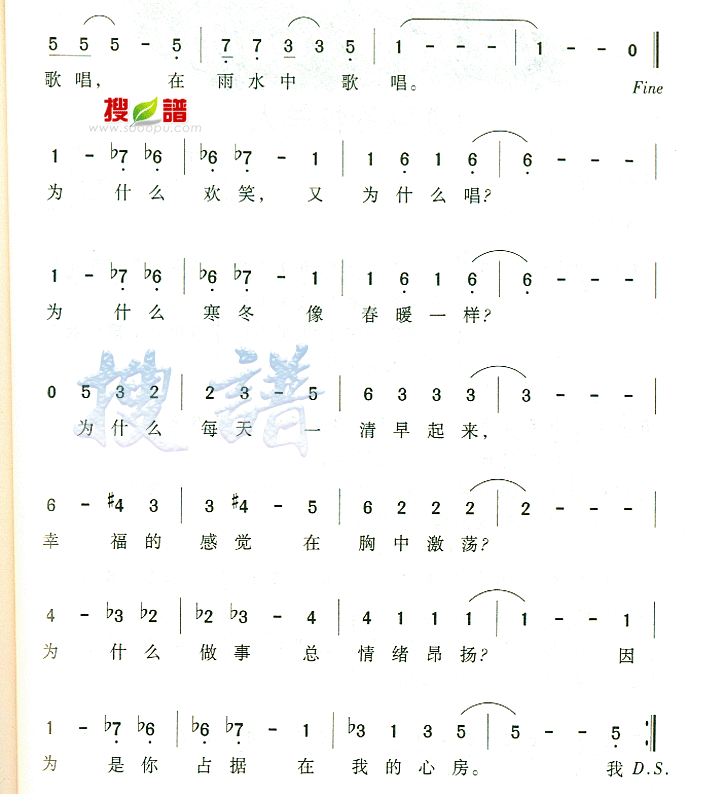 5 5 5 - 5 | 7 7 3 3 5 | 1 - - - | 1 - - 0 ‖
歌唱， 在 雨水中 歌 唱。 Fine
搜 譜
www.sooopu.com
1 - ♭7 ♭6 | ♭6 ♭7 - 1 | 1 6 1 6 | 6 - - - |
为 什 么 欢 笑， 又 为 什 么 唱？
1 - ♭7 ♭6 | ♭6 ♭7 - 1 | 1 6 1 6 | 6 - - - |
为 什 么 寒 冬 像 春 暖 一 样？
搜 譜
0 5 3 2 | 2 3 - 5 | 6 3 3 3 | 3 - - - |
为 什 么 每 天 一 清 早 起 来，
6 - ♯4 3 | 3 ♯4 - 5 | 6 2 2 2 | 2 - - - |
幸 福 的 感 觉 在 胸 中 激 荡？
4 - ♭3 ♭2 | ♭2 ♭3 - 4 | 4 1 1 1 | 1 - - 1 |
为 什 么 做 事 总 情 绪 昂 扬？ 因
1 - ♭7 ♭6 | ♭6 ♭7 - 1 | ♭3 1 3 5 | 5 - - 5 :‖
为 是 你 占 据 在 我 的 心 房。 我 D.S.